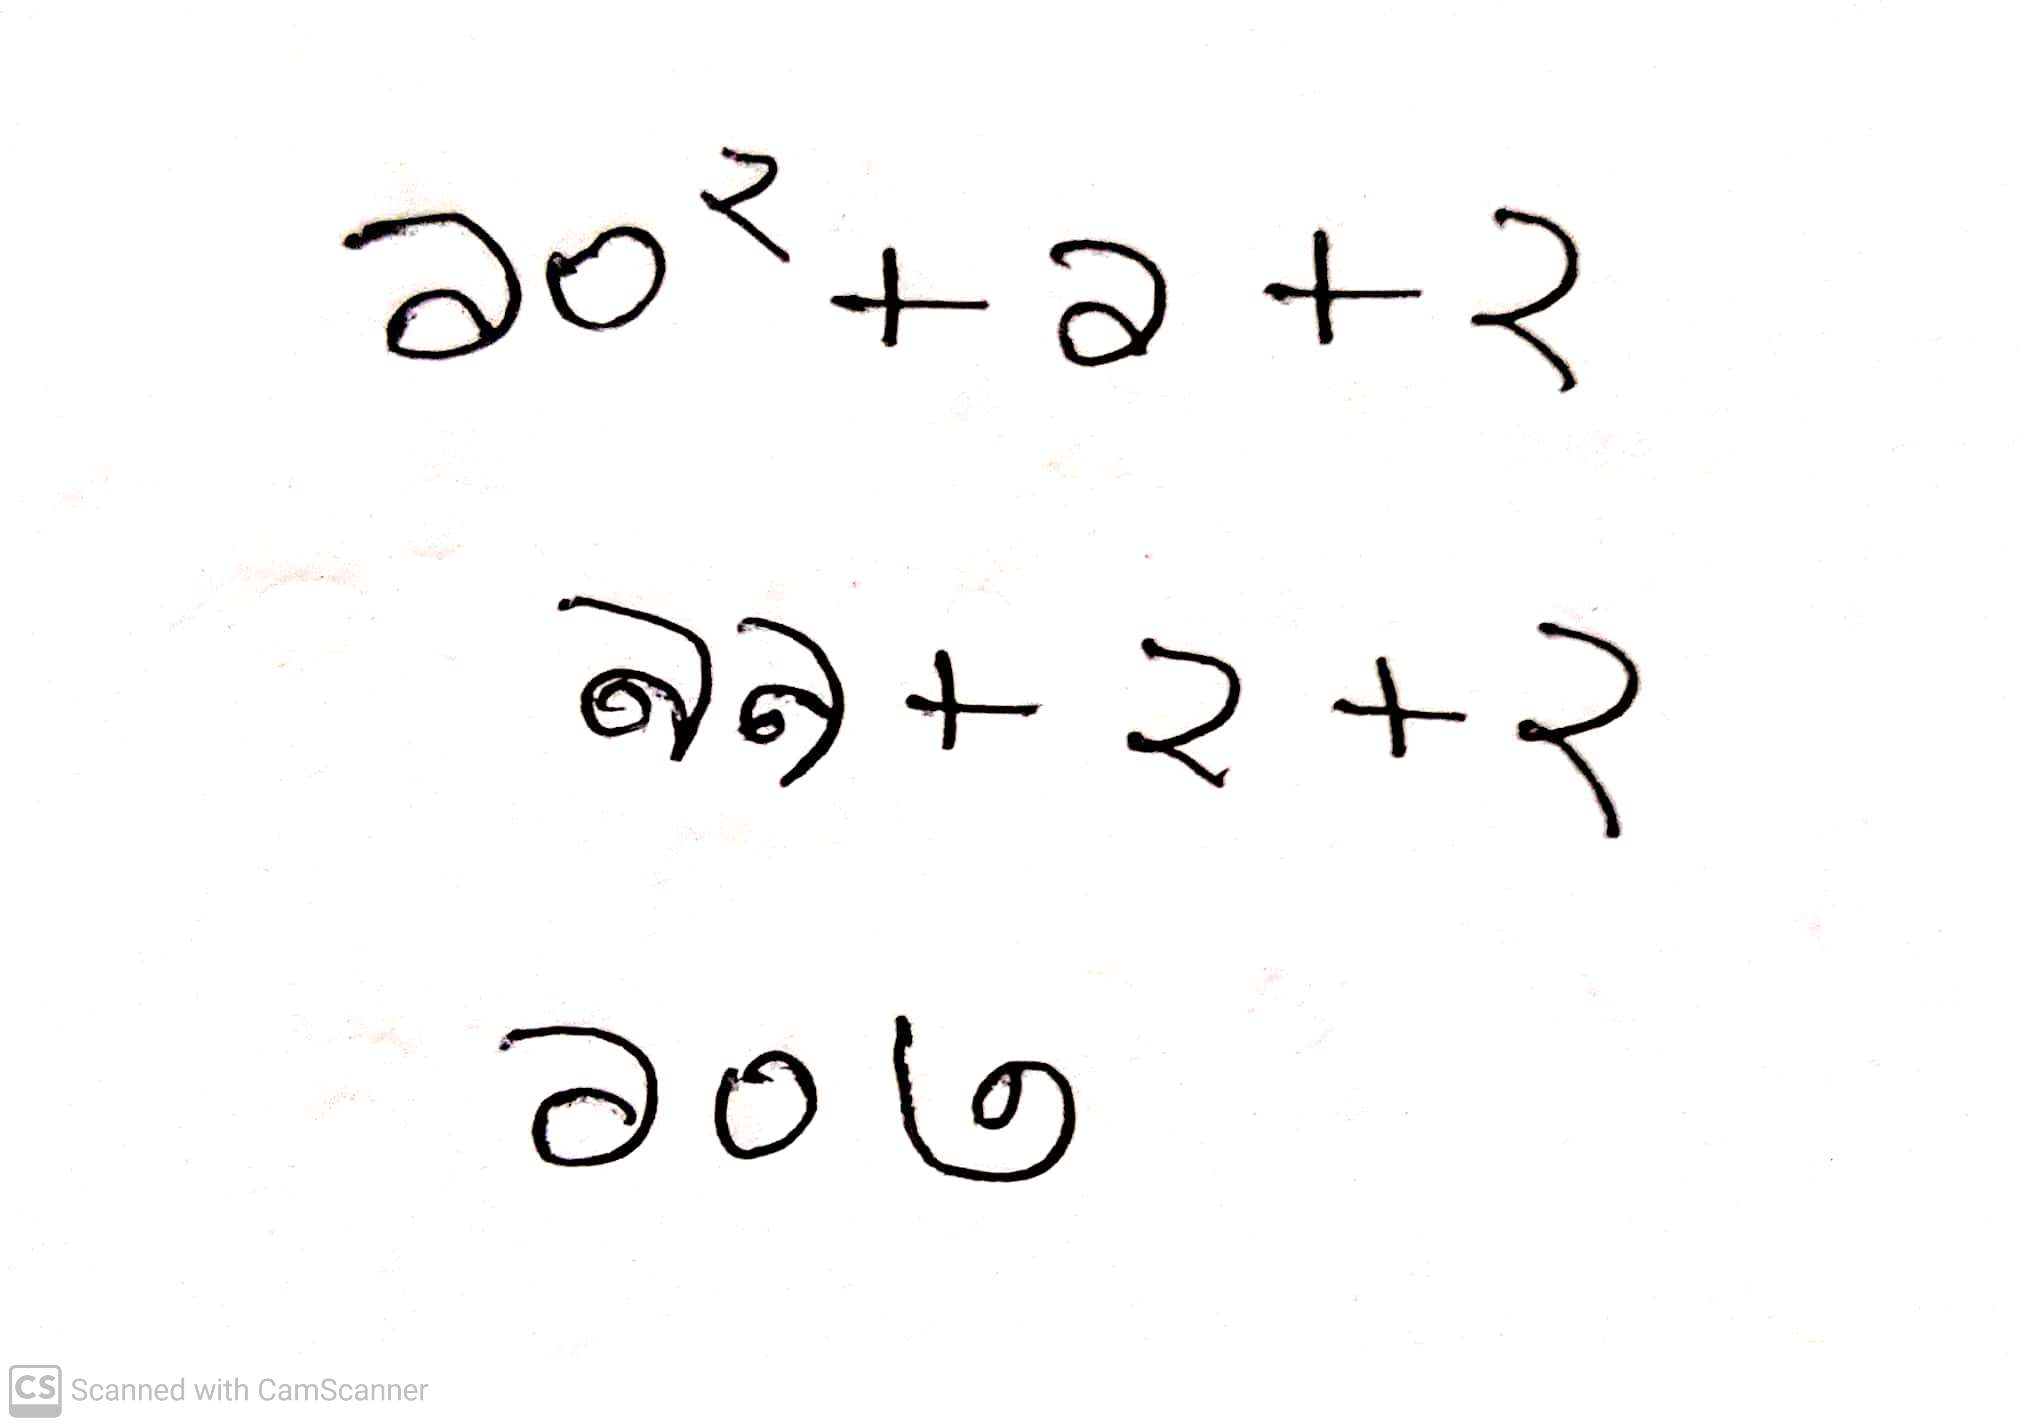 ১০^২ + ১ + ২
৯৯ + ২ + ২
১০৩
CS Scanned with CamScanner